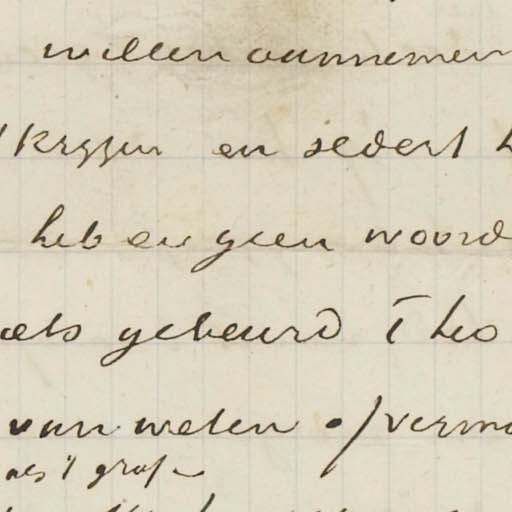 willen aannemen
krijgen en sedert h
heb en geen woord
als gebeurd Theo
van weten of verm
als 't graf